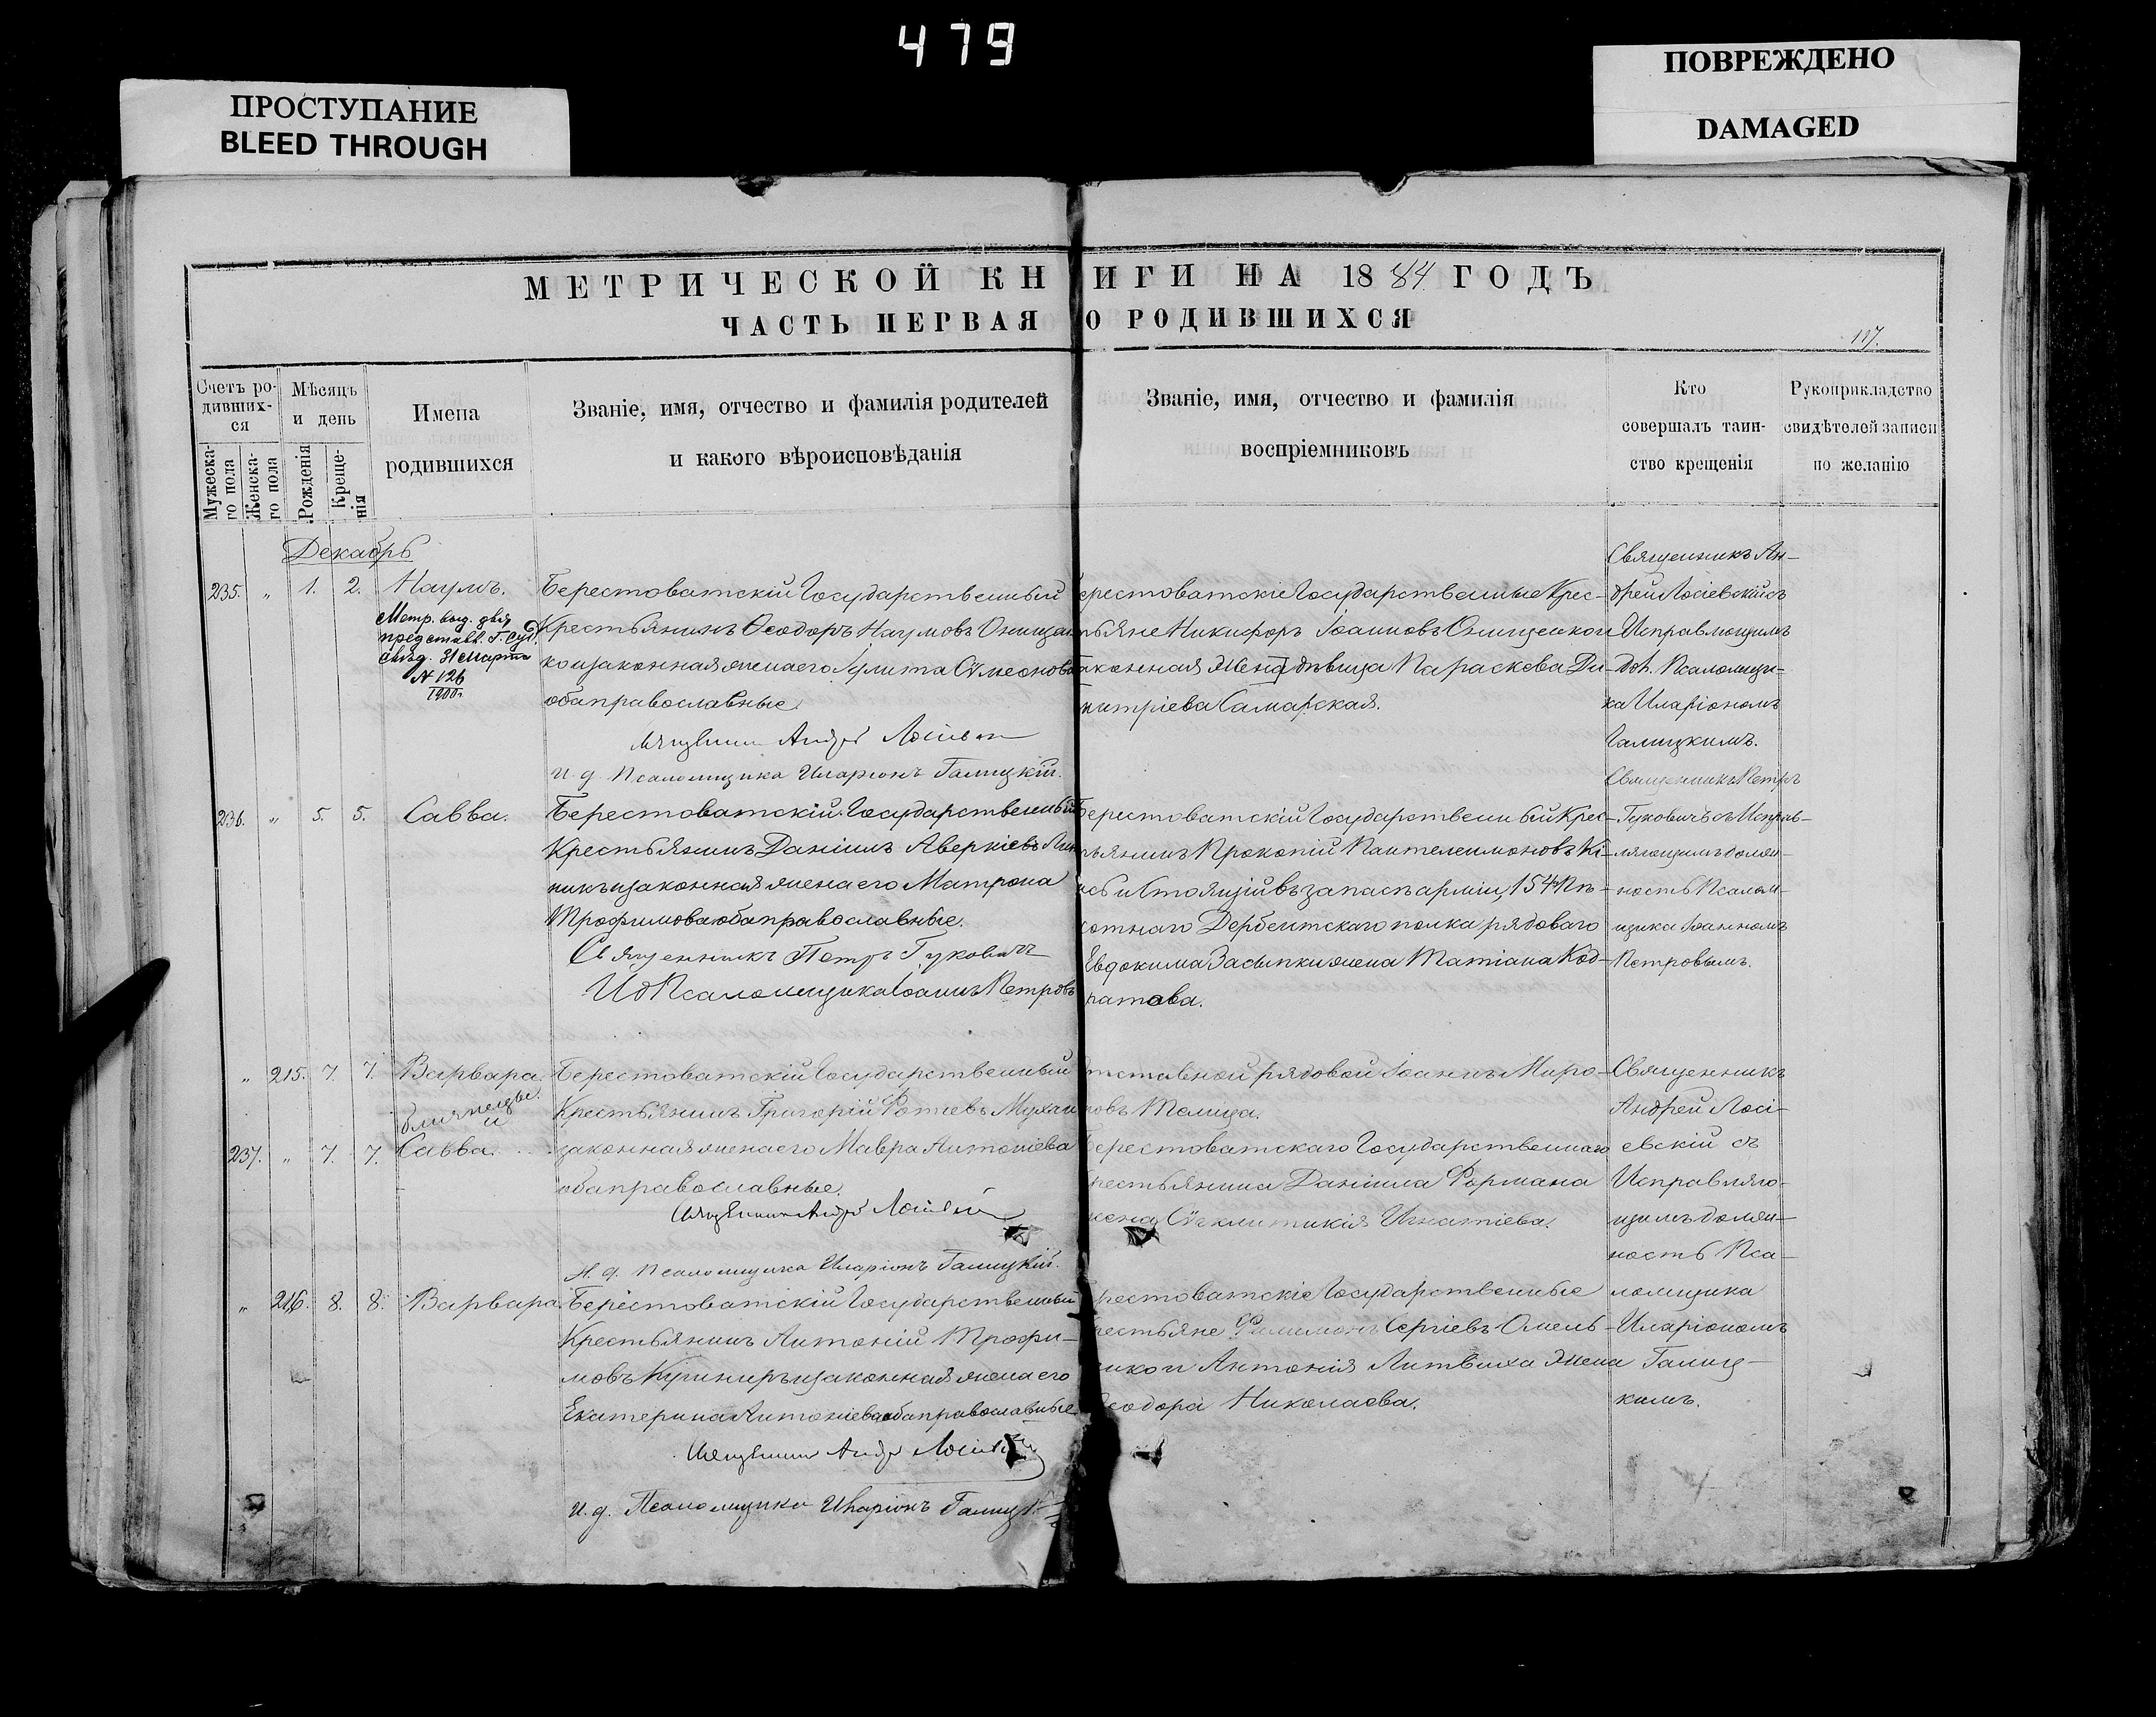 479
ПРОСТУПАНИЕ
BLEED THROUGH
ПОВРЕЖДЕНО
DAMAGED
МЕТРИЧЕСКОЙ КНИГИ НА 1884 ГОДЪ
ЧАСТЬ ПЕРВАЯ О РОДИВШИХСЯ
117.
Счетъ ро-
дивших-
ся
Мужеска-
го пола
Женска-
го пола
Мѣсяцъ
и день
Рожденія
Креще-
нія
Имена
родившихся
Званіе, имя, отчество и фамилія родителей
и какого вѣроисповѣданія
Званіе, имя, отчество и фамилія
воспріемниковъ
Кто
совершалъ таин-
ство крещенія
Рукоприкладство
свидѣтелей записи
по желанію
Декабрь
235. „ 1. 2. Наумъ.
Метр. выд. для
представл. Г. Суд.
Слѣд. 31 Марта
N 126
1900 г.
Берестоватскій Государственный
Крестьянинъ Ѳеодоръ Наумовъ
и законная жена его Іулита Сѵмеонова
оба православные.
Священникъ Андрей
И. д. Псаломщика Иларіонъ Галицкій.
Берестоватскіе Государственные Крес-
тьяне Никифоръ Іоанновъ
дѣвица Параскева Ди-
митріева Самарская.
Священникъ Ан-
дрей Лосіевскій съ
Исправляющимъ
дол. Псаломщи-
ка Иларіономъ
Галицкимъ.
236. „ 5. 5. Савва.
Берестоватскій Государственный
Крестьянинъ Даніилъ Аверкіевъ
и законная жена его Матрона
Трофимова оба православные.
Священникъ Петръ Гуковичъ
И д Псаломщика Іоаннъ Петровъ
Берестоватскій Государственный Крес-
тьянинъ Прокопій Пантелеимоновъ
и Стоящій въ запасѣ арміи, 154 Пѣ-
хотнаго Дербентскаго полка рядоваго
Евдокима Засыпки жена Татіана Код-
ратова.
Священникъ Петръ
Гуковичъ съ Исправ-
ляющимъ долж-
ность Псалом-
щика Іоанномъ
Петровымъ.
„ 215. 7. 7. Варвара.
близнецы.
и
237. „ 7. 7. Савва.
Берестоватскій Государственный
Крестьянинъ Григорій Фотіевъ
законная жена его Мавра Антоніева
оба православные.
Священникъ Андрей
И. д. Псаломщика Иларіонъ Галицкій.
Отставной рядовой Іоаннъ Миро-
новъ Телица.
Берестоватскаго Государственнаго
Крестьянина Даніила Формана
жена Сѵнклитикія Игнатіева.
Священникъ
Андрей Лосі-
евскій съ
Исправляю-
щимъ долж-
ность Пса-
ломщика
Иларіономъ
Галиц-
кимъ.
„ 216. 8. 8. Варвара.
Берестоватскій Государственный
Крестьянинъ Антоній Трофи-
мовъ Кушниръ и законная жена его
Екатерина Антоніева оба православные.
Священникъ Андрей
И. д. Псаломщика Иларіонъ Галицкій
Берестоватскіе Государственные
Крестьяне Филимонъ Сергіевъ Омель-
Антонія Литвина жена
Ѳеодора Николаева.